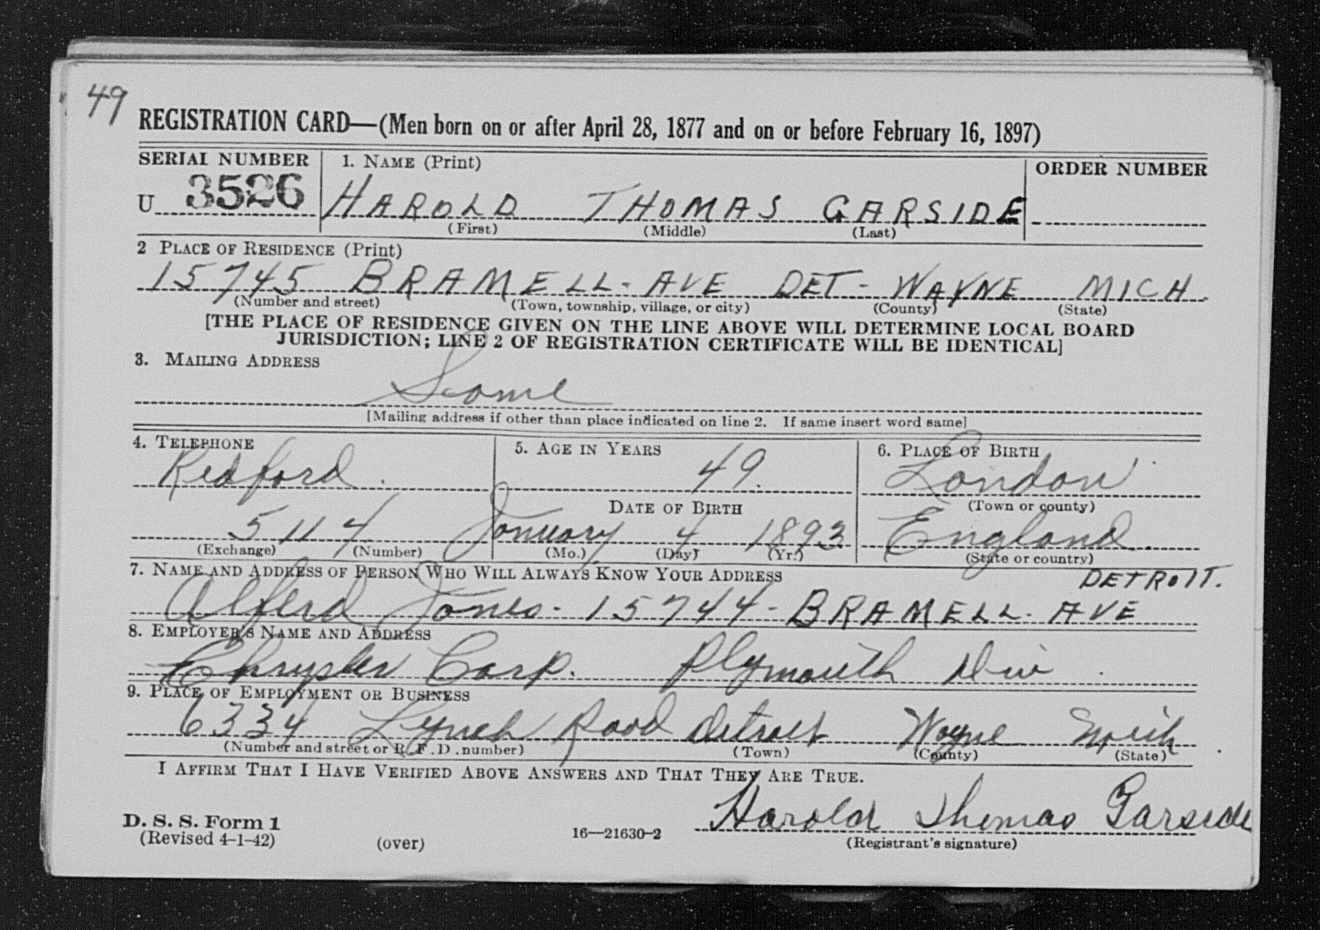 49
REGISTRATION CARD—(Men born on or after April 28, 1877 and on or before February 16, 1897)
SERIAL NUMBER 1. NAME (Print) ORDER NUMBER
U 3526 HAROLD THOMAS GARSIDE
(First) (Middle) (Last)
2 PLACE OF RESIDENCE (Print)
15745 BRAMELL - AVE DET - WAYNE MICH.
(Number and street) (Town, township, village, or city) (County) (State)
[THE PLACE OF RESIDENCE GIVEN ON THE LINE ABOVE WILL DETERMINE LOCAL BOARD
JURISDICTION; LINE 2 OF REGISTRATION CERTIFICATE WILL BE IDENTICAL]
3. MAILING ADDRESS
Same
[Mailing address if other than place indicated on line 2. If same insert word same]
4. TELEPHONE 5. AGE IN YEARS 6. PLACE OF BIRTH
Redford. 49. London
DATE OF BIRTH (Town or county)
5114 January 4 1893 England.
(Exchange) (Number) (Mo.) (Day) (Yr.) (State or country)
7. NAME AND ADDRESS OF PERSON WHO WILL ALWAYS KNOW YOUR ADDRESS DETROIT.
Alferd Jones - 15744 - BRAMELL - AVE
8. EMPLOYER'S NAME AND ADDRESS
Chrysler Corp. Plymouth Div.
9. PLACE OF EMPLOYMENT OR BUSINESS
6334 Lynch Road Detroit Wayne Mich.
(Number and street or R. F. D. number) (Town) (County) (State)
I AFFIRM THAT I HAVE VERIFIED ABOVE ANSWERS AND THAT THEY ARE TRUE.
Harold Thomas Garside
D. S. S. Form 1
(Revised 4-1-42) (over) 16—21630-2 (Registrant's signature)